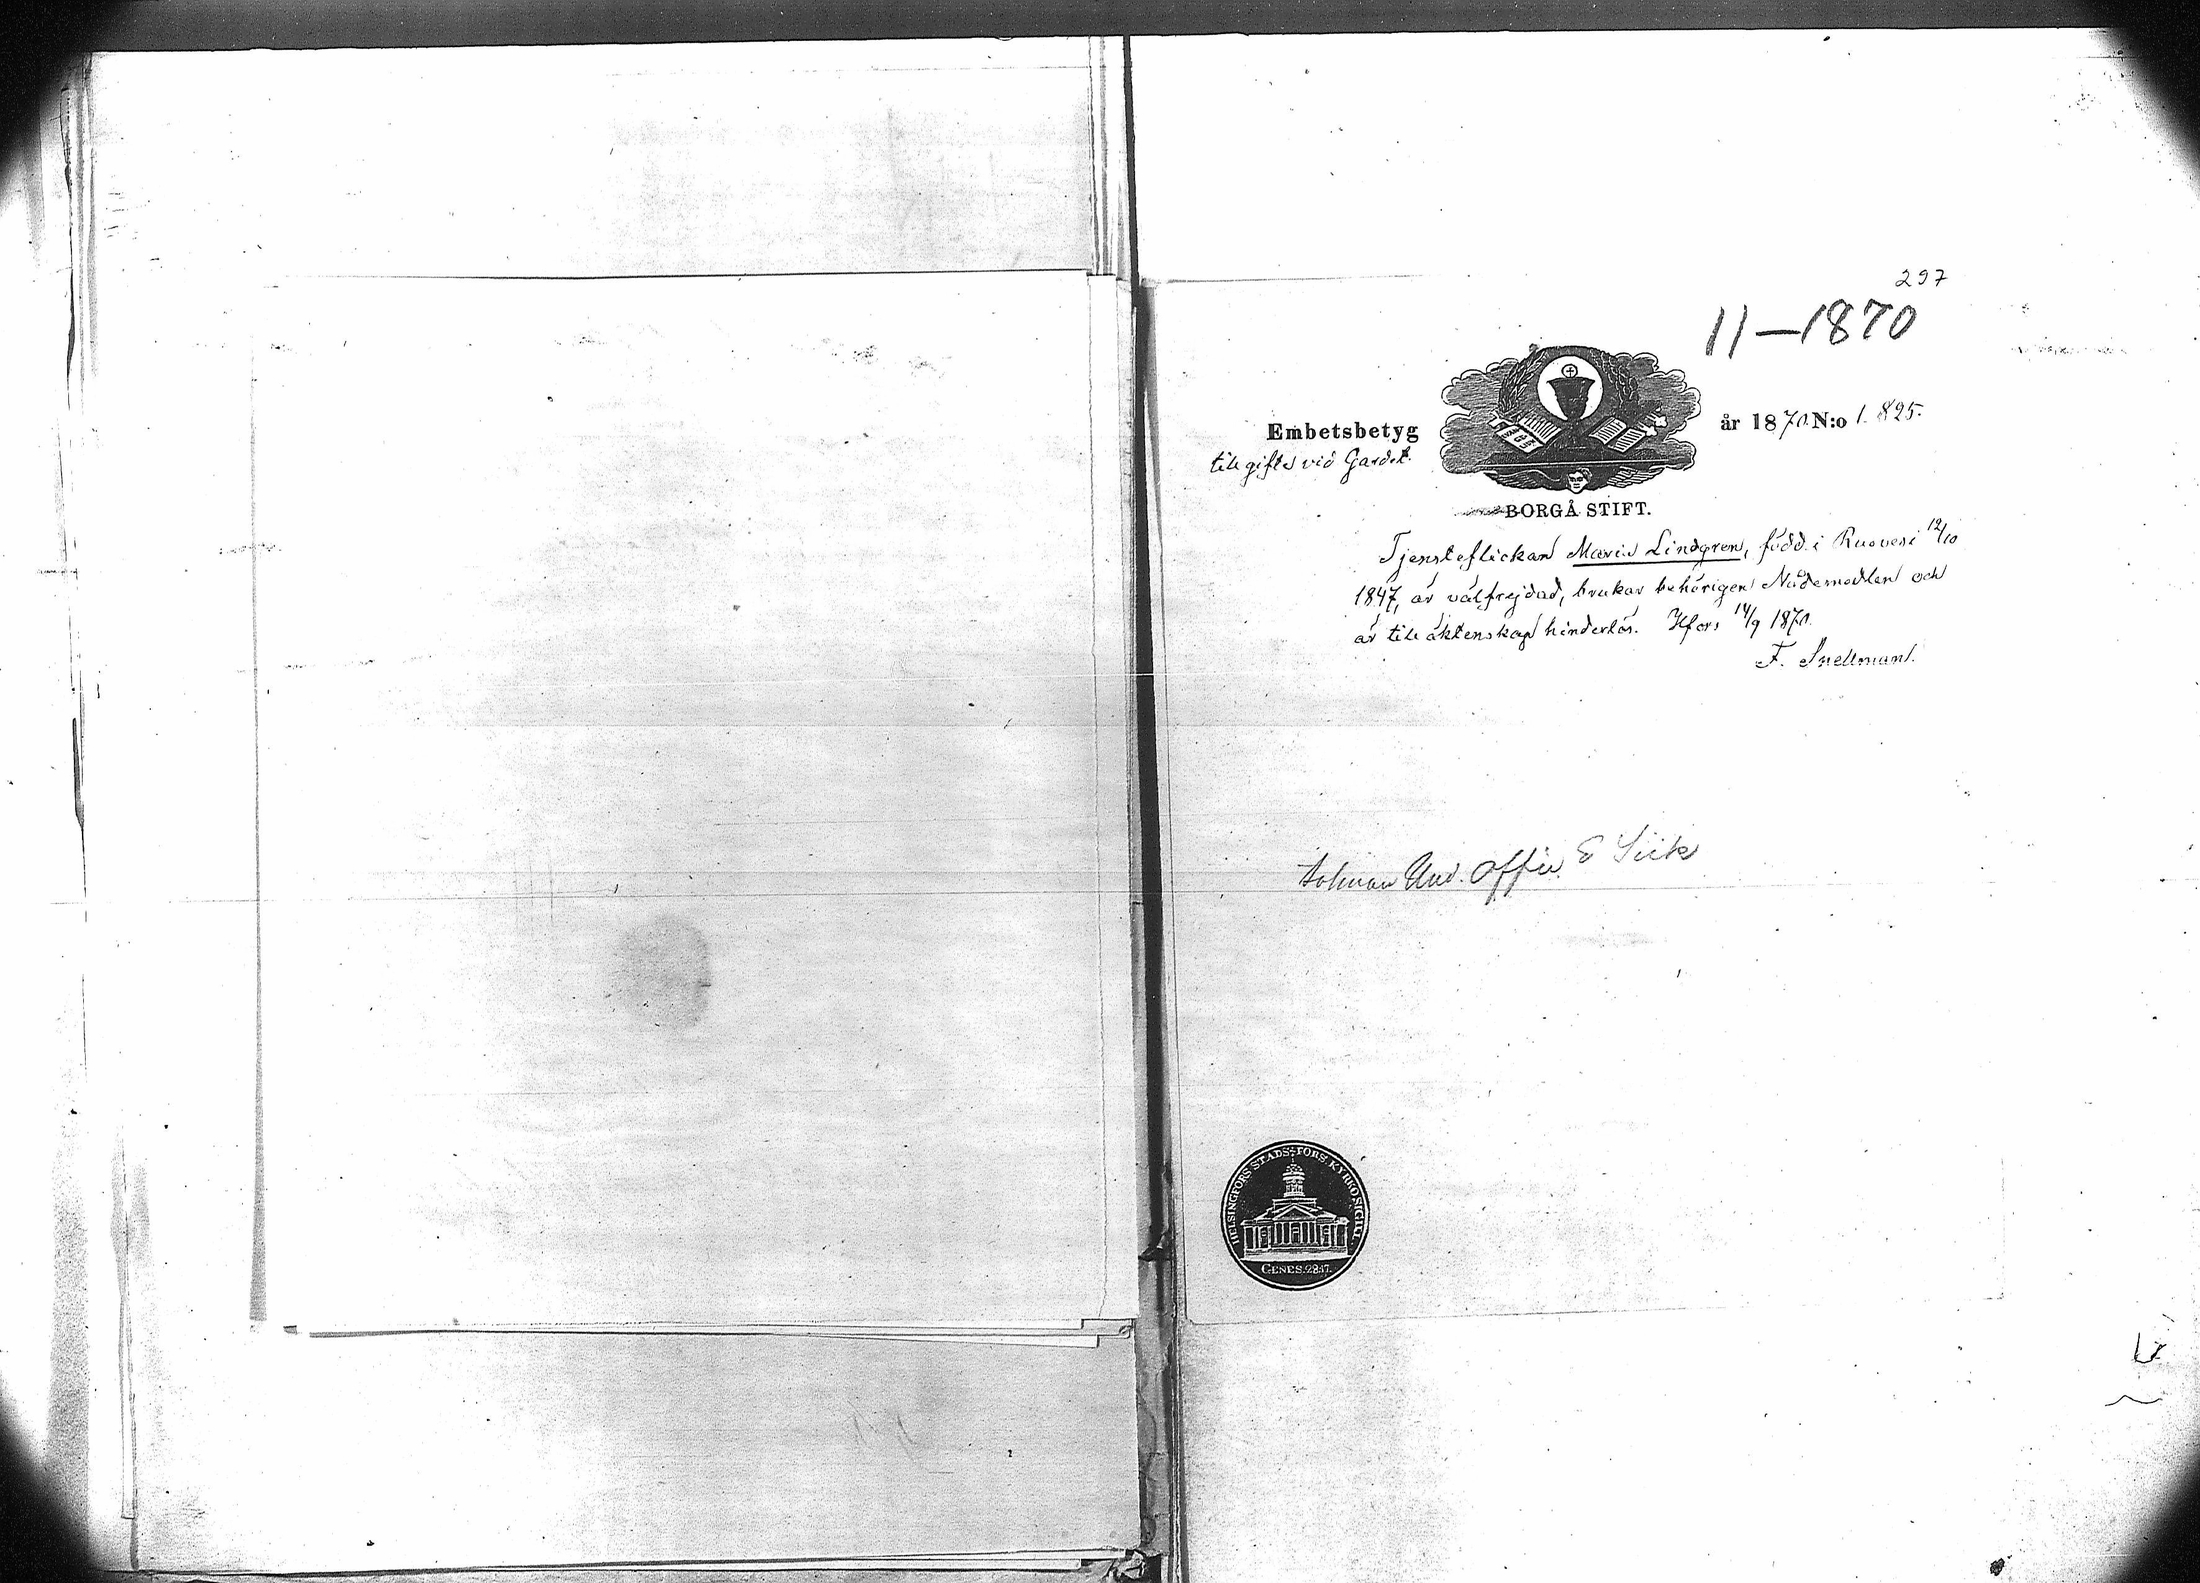 297
11—1870
Embetsbetyg
år 1870. N:o 1.825.
till gifte vid Gardet.
BORGÅ STIFT.
Tjensteflickan Maria Lindgren, född i Ruovesi 12/10
1847, är välfrejdad, brukar behörigen Nådemedlen och
är till äktenskap hinderlös. Hfors 14/9 1870.
F. Snellman.
Und. Offic. E
HELSINGFORS STADS-FÖRS: KYRKOSIGILL.
GENES. 28.17.